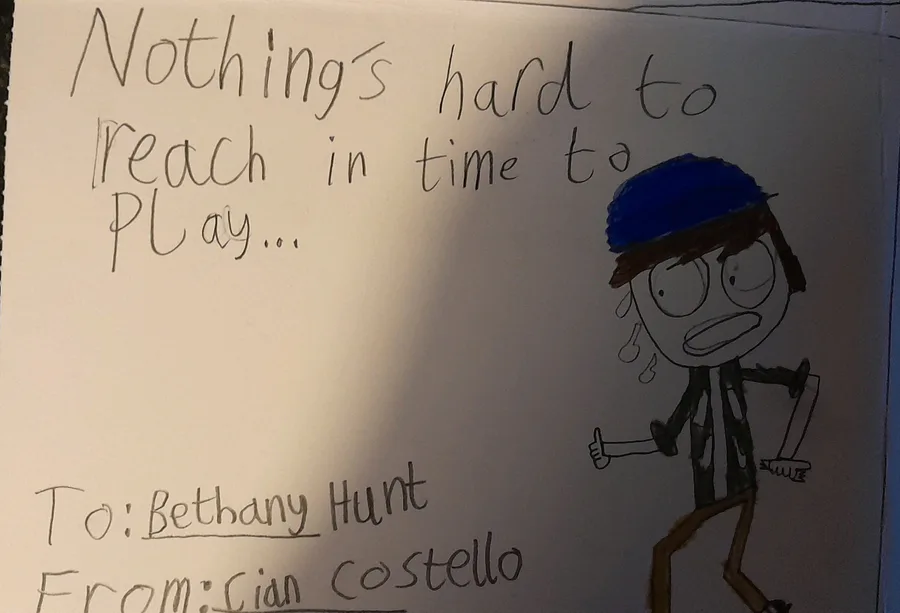 Nothing's hard to
reach in time to
PLay...
To: Bethany Hunt
From: Cian Costello